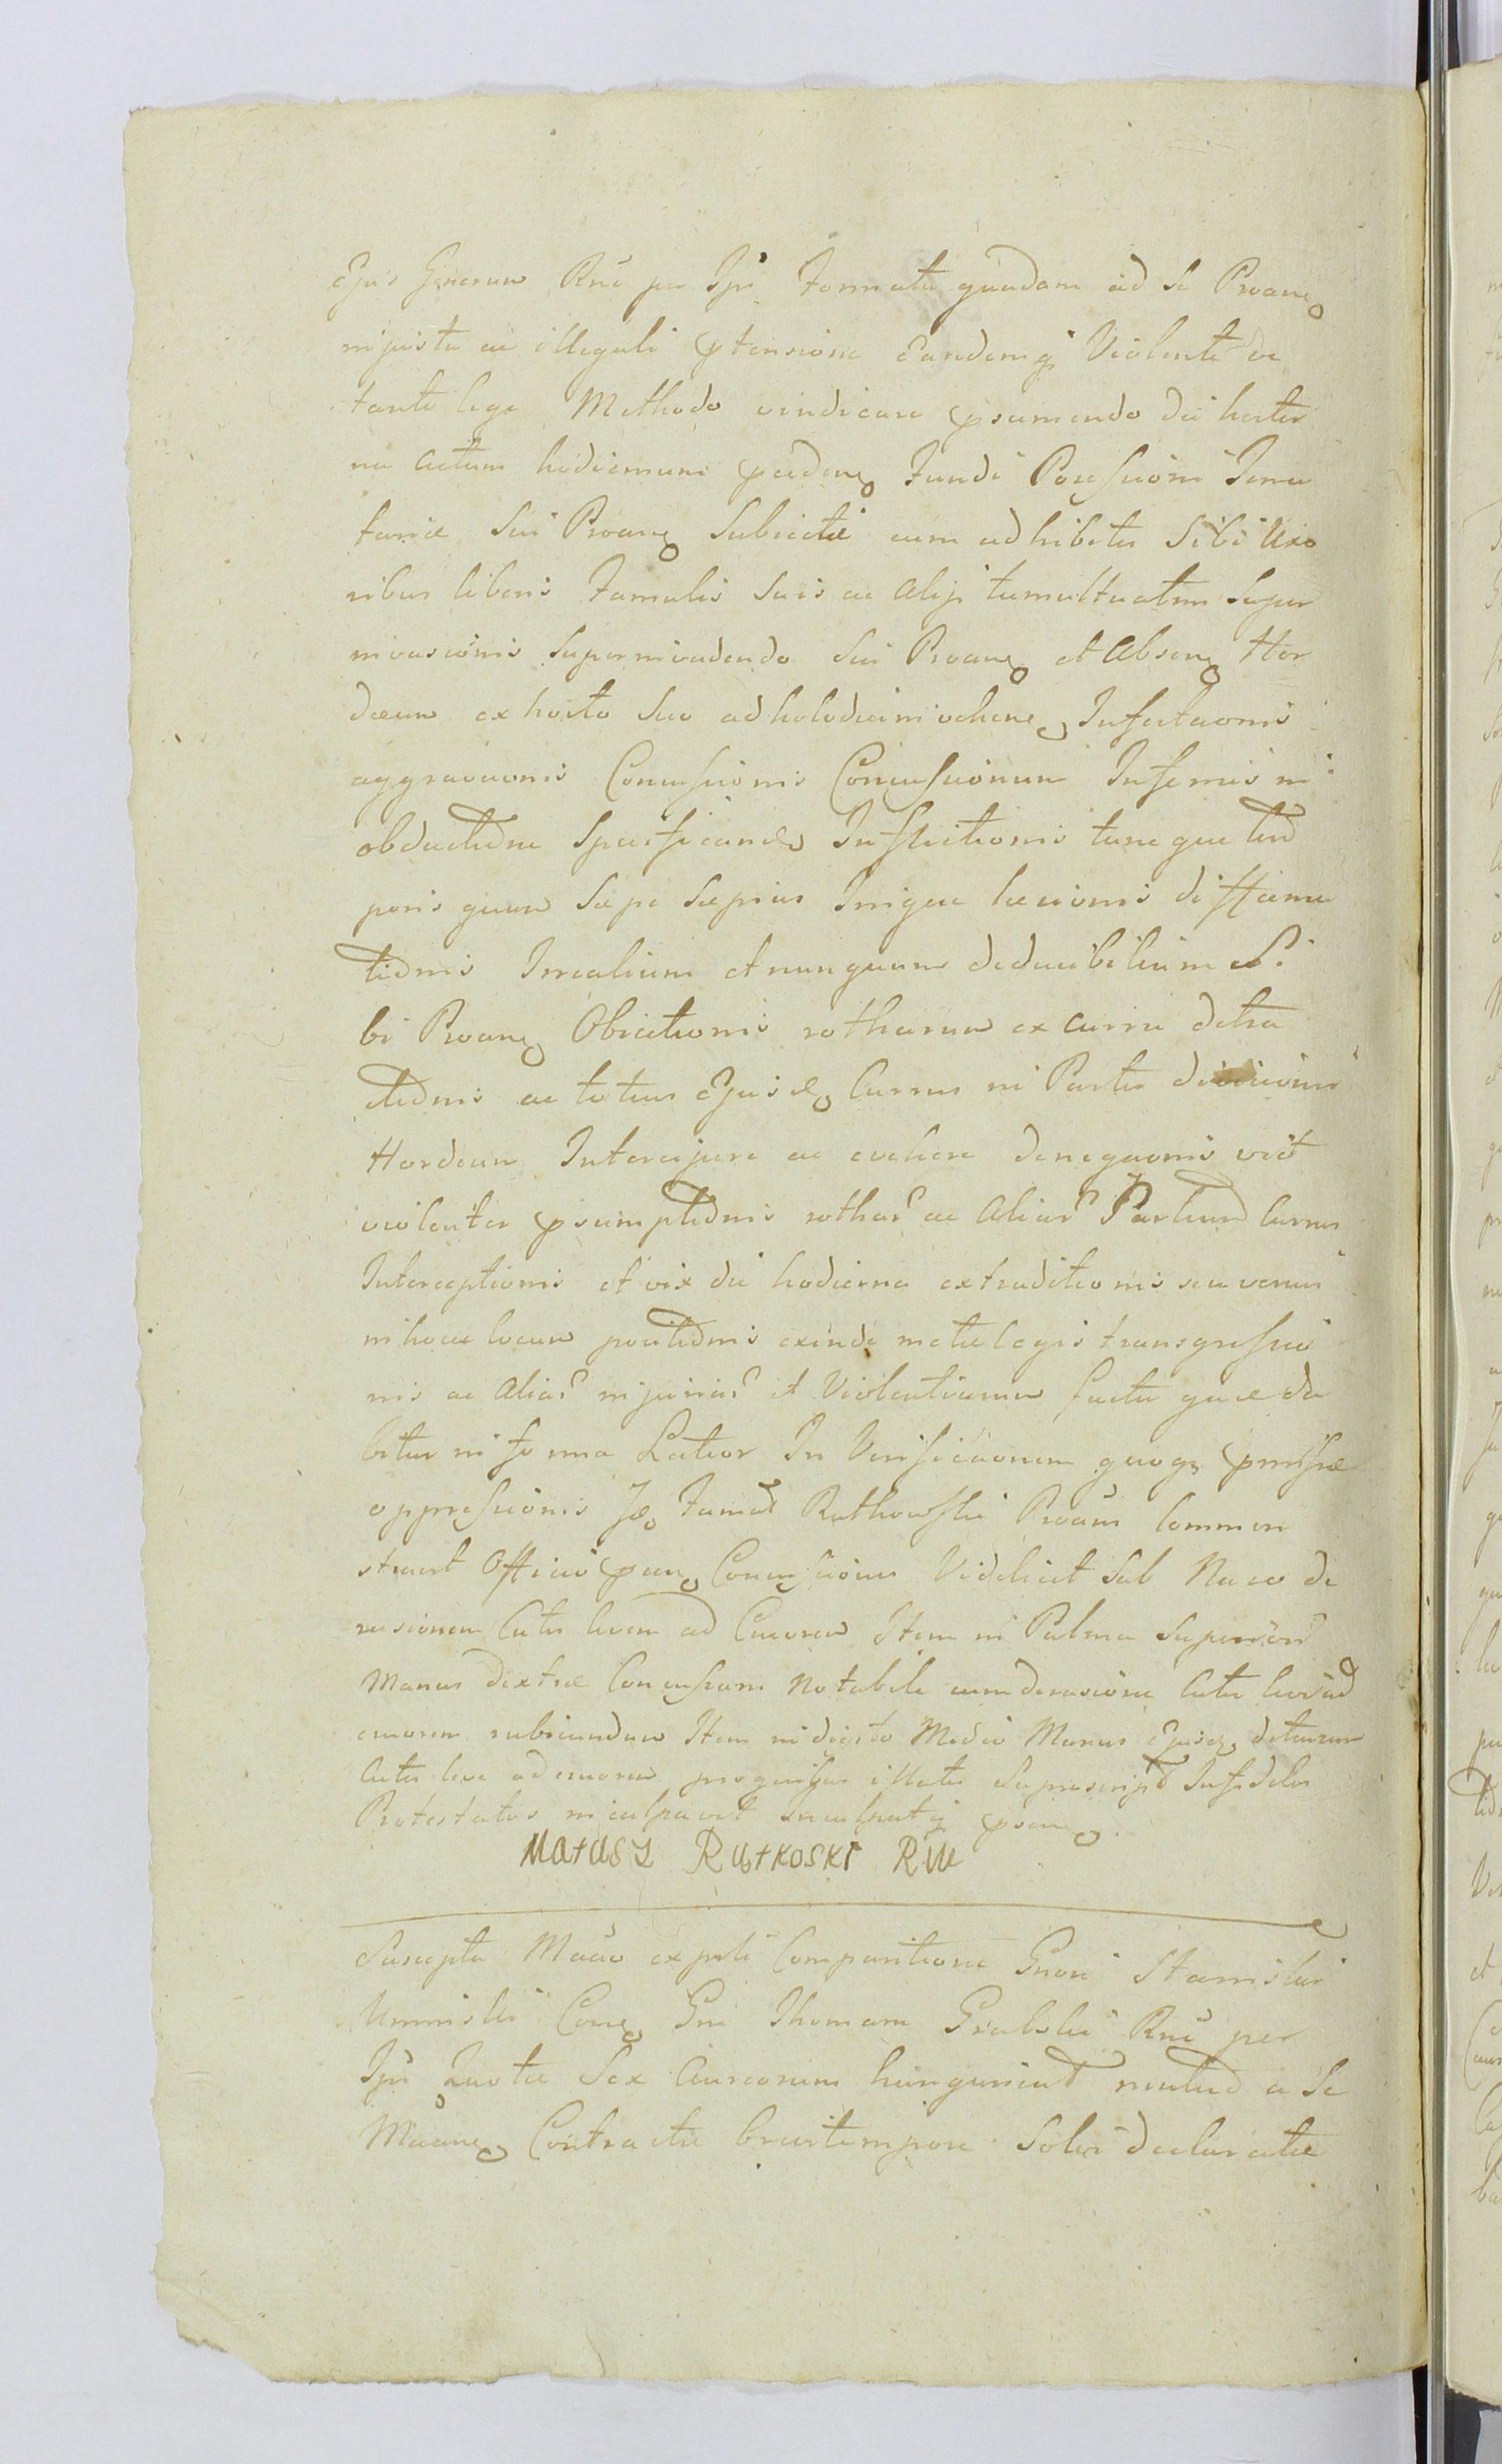 Ejus Generum Rne per Ipr Formata quadam ad se Proan
injusta ac illegali ptensione eandemq Violente ve
tante lege Methodo vindicare psumendo die hester
na actum hodiernum pceden Fundi Possessioni Tenu
tariæ Sui Proan Subiectæ cum adhibitis Sibi Uxo
ribus liberis Famulis Suis ac Alijs tumultuatim Super
invasionis Superinvadendo Sui Proan et Absen Hor
deum ex horto Suo ad invehen Infestaonis
aggravaonis Concussionis Concussionum Inferius in
obductione Specificand Inflictionis tunc que tem
poris quum Sæpe Sæpius Inique læsionis diffama
tionis Irrealium et nunquam deducibilium Si
bi Proan Obiectionis rotharum ex curru detra
ctionis ac totius Ejusd Currus in Partes divisionis
Hordeum Intercipere ac evehere denegaonis
violenter psumptionis rothar ac Aliar Partium Currus
Interceptionis et vix die hodierna extraditionis seu versus
in hocce locum positionis exinde metæ legis transgressio
nis ac Aliar injuriar et Violentiarum facta quæ da
bitur in forma Latior In Verificaonem quoq pmissæ
oppressionis Famat Ruthowski Proans Commen
stravit Officio pnn Concussiones Videlicet Sub Naso de
rasionem Cutis levem ad Cruorem Item in Palma Superiori
Manus dextræ Concussum Notabile cum derasione Cutis levi ad
cruorem rubicundum Item in digito Medio Manus Ejusd detersum
Cutis leve ad cruorem pro quibus illatis Suprascript Infideles
Protestatos inculpavit inculpatq psen
Matusz Rutkoski RW
Suscepto Maao ex psti Comparitione Gnosi Stanislai
Uminski Con Gm Thomam Grabski Rne per
Ipr Quotæ Sex Aureorum hungarical mutuo a Se
Maan Contractæ brevi tempore Solvi declaratæ